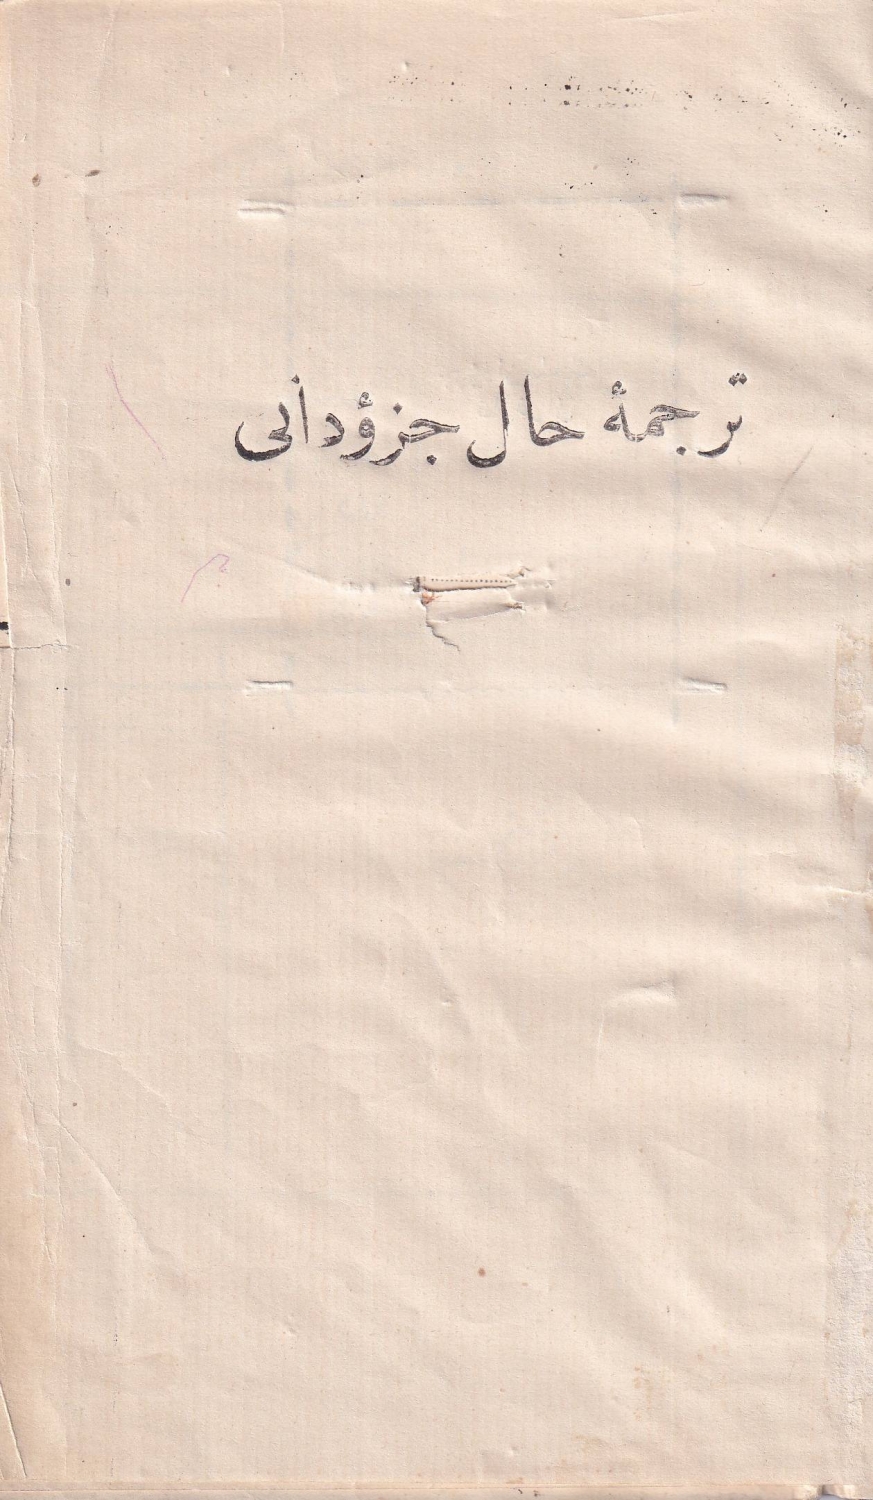 ترجمهٔ حال جزؤدانى